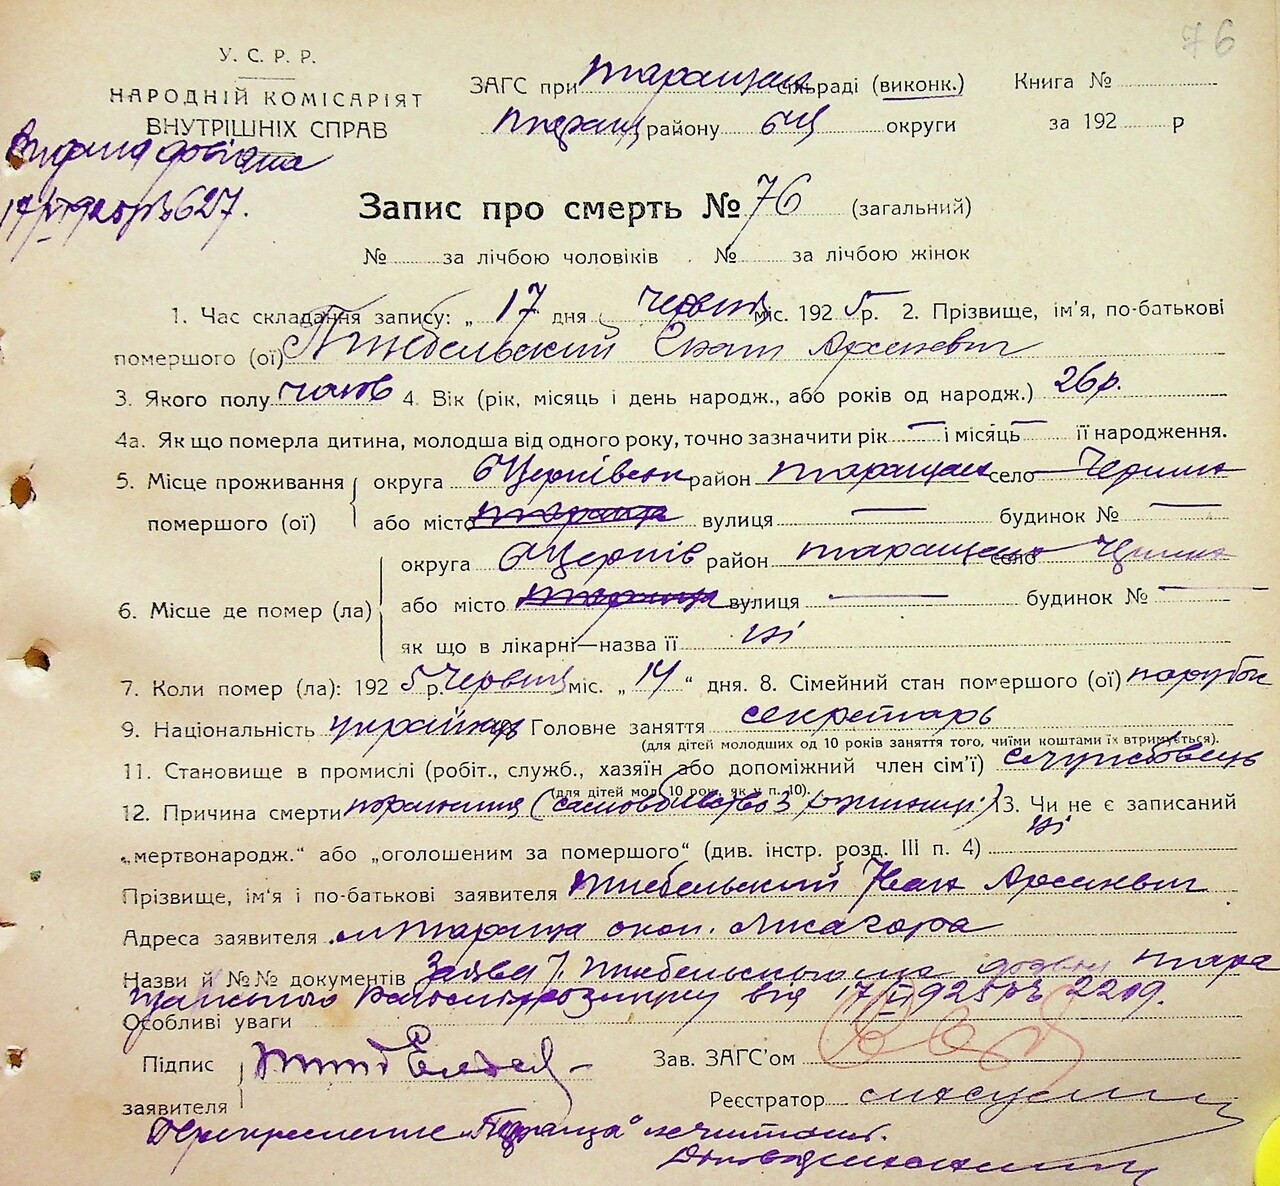 76
У. С. Р. Р.
НАРОДНІЙ КОМІСАРІЯТ
ВНУТРІШНІХ СПРАВ
ЗАГС при Таращан сільраді (виконк.) Книга №
Таращ району бЦ округи за 192 р
17/VI 925 р № 627.
Запис про смерть № 76 (загальний)
№ за лічбою чоловіків № за лічбою жінок
1. Час складання запису: „ 17 дня червня міс. 192 5 р. 2. Прізвище, ім'я, по-батькові
помершого (ої) Арсеневич
3. Якого полу чолов 4. Вік (рік, місяць і день народж., або років од народж.) 26 р.
4а. Як що померла дитина, молодша від одного року, точно зазначити рік — і місяць — її народження.
5. Місце проживання помершого (ої) округа бЦерківськ район Таращан село
або місто Тараща вулиця — будинок № —
6. Місце де помер (ла) округа бЦерків район Таращан село
або місто Тараща вулиця — будинок № —
як що в лікарні—назва її ні
7. Коли помер (ла): 192 5 р. червня міс. „ 14 “ дня. 8. Сімейний стан помершого (ої) парубок
9. Національність українець Головне заняття секретарь
(для дітей молодших од 10 років заняття того, чиїми коштами їх втримується).
11. Становище в промислі (робіт., служб., хазяїн або допоміжний член сім'ї) службовець
(для дітей мол. 10 рок. як у п. 10).
12. Причина смерти (самовбивство з рушниці) 13. Чи не є записаний
„мертвонародж.“ або „оголошеним за помершого“ (див. інстр. розд. III п. 4) ні
Прізвище, ім'я і по-батькові заявителя Іван Арсеневич
Адреса заявителя м Тараща окол. Лисагора
Назви й №№ документів Заява І. та дозвіл Тара
щанського від 17/VI 925 р № 2209.
Особливі уваги
Підпис заявителя
Зав. ЗАГС'ом
Реєстратор
„Тараща“ не читати.